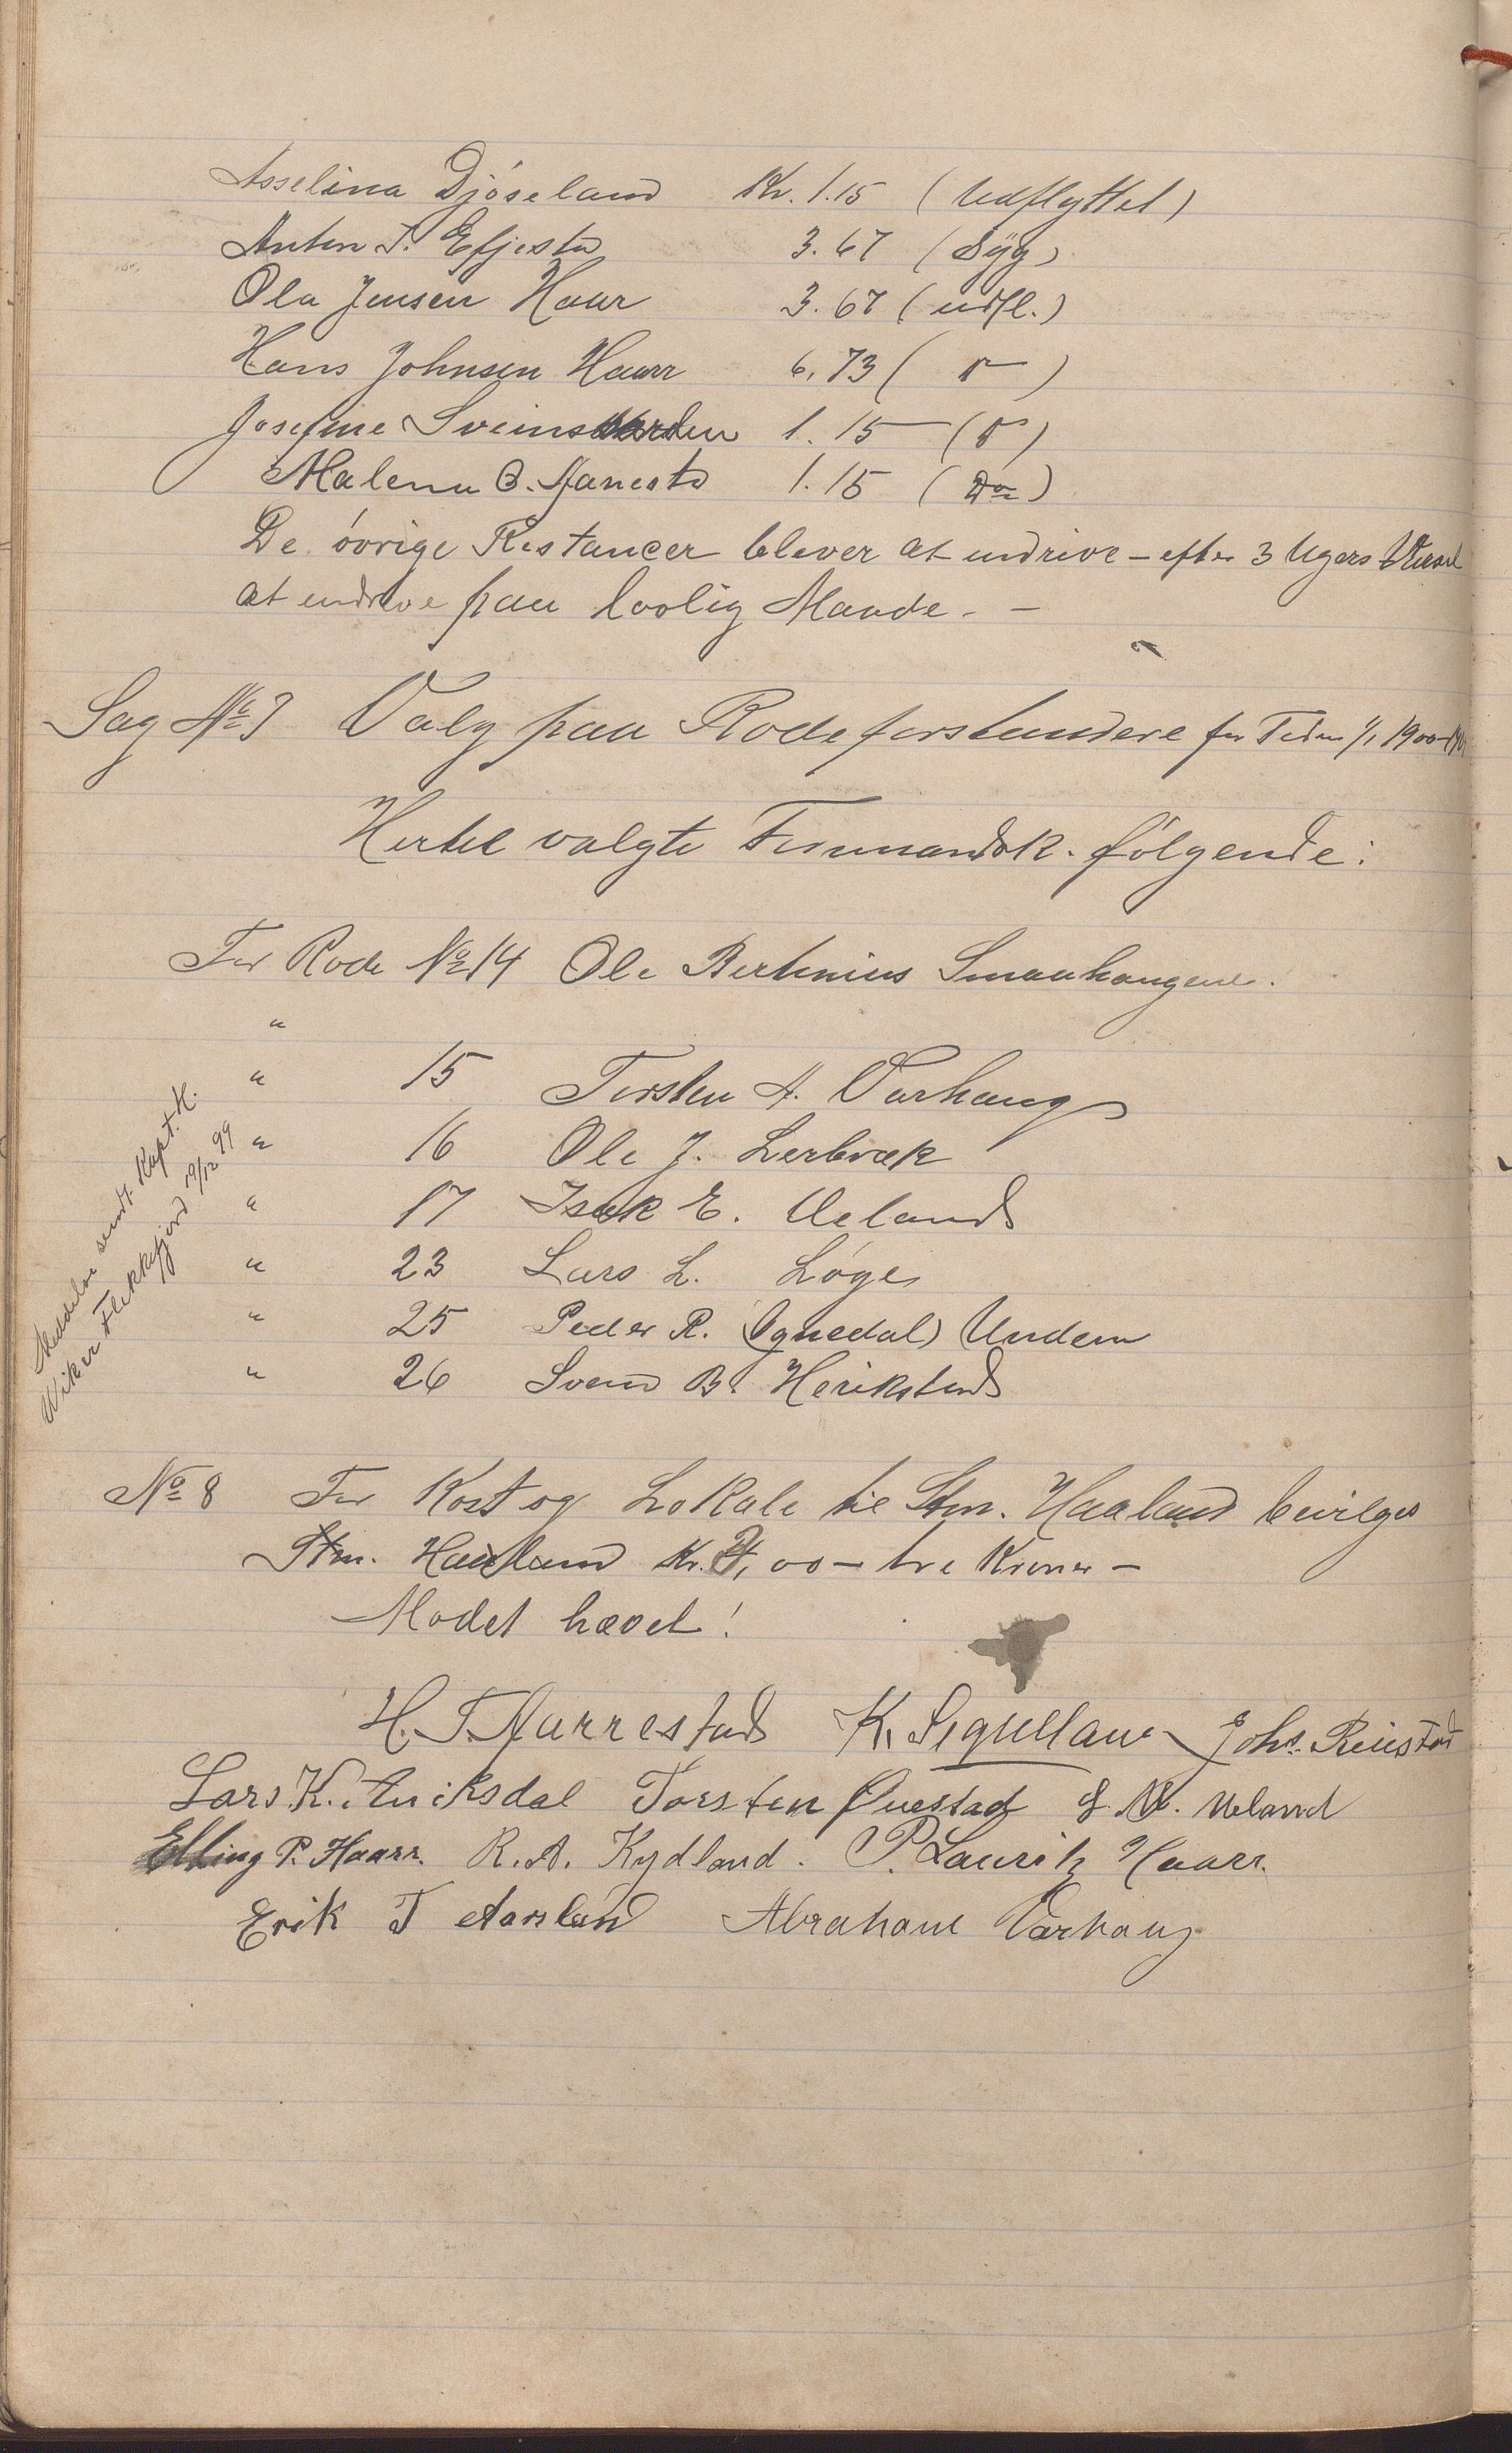 Asselina Djöseland Kr. 1.15 (Udflyttet)
Anton T. Efjestø 3.67 (Syg)
Ola Jensen Haar 3.67 (udfl.)
Hans Johnsen Haarr 6,73 ( )
Josefine 1.15 ( )
Malena B. 1.15 (Do)
De øvrige Restancer blever at indrive - efter 3 Ugers
at indrive paa lovlig Maade. -
Sag No 7 Valg paa Rodeforstandere for Tiden 1/1 1900
Hertil valgte Formandsk. følgende:
For Rode No 14 Ole Bertinius Smaahaugene.
"
" 15 Torsten A. Varhaug
" 16 Ole J. Lerbræk
" 17 Isak E. Ueland
" 23 Lars L. Løge
" 25 Peder R. (Ognedal) Undem
" 26 Svend B. Herikstad
Meddelse sendt Kapt. K.
Wiker Flekkefjord 19/12 99
No 8 For Kost og Lokale til Stm. Haaland bevilges
Stm. Haaland Kr. 3,00 - tre Kroner -
Modet hævet!
H. T. Narrestad K. Sigvelland Johs. Reiestad
Lars K. Auiksdal Torsten Øuestad J. M. Ueland
Elling P. Haarr. R. A. Kydland. P. Laurits Haarr.
Erik T Aarsland Abraham Varhaug